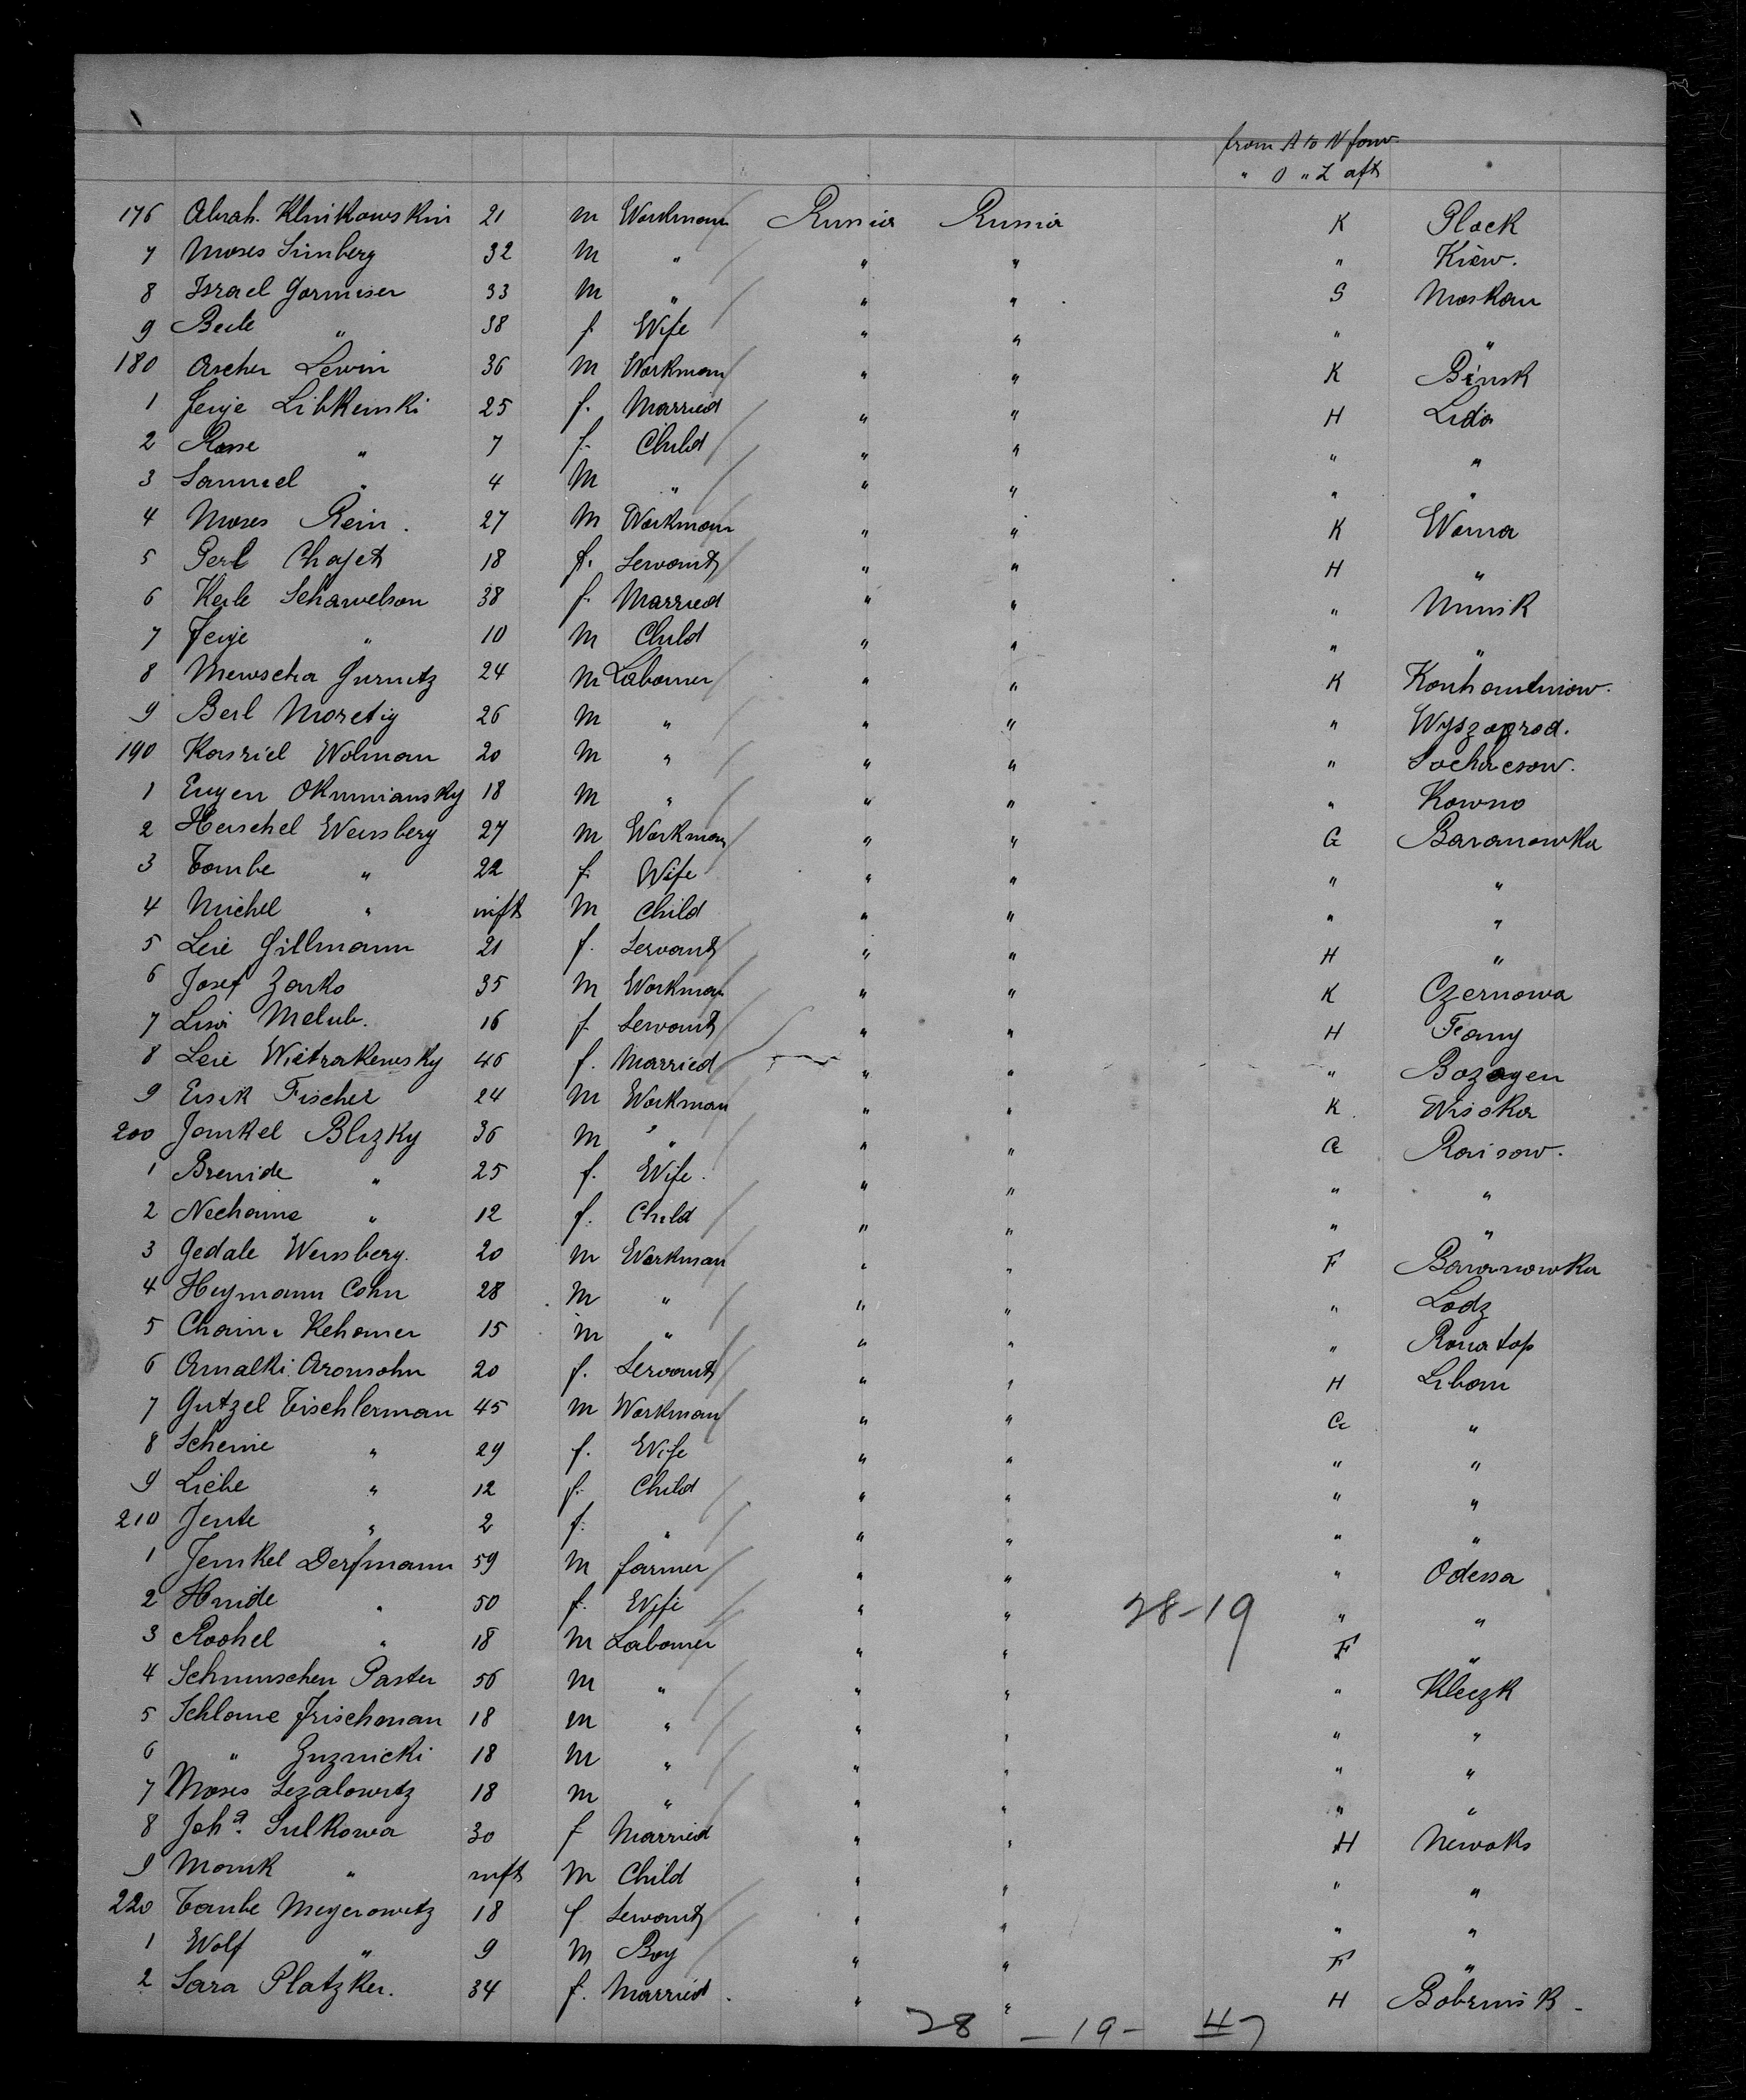 from A to N forw.
" O " Z aft
176 Abrah. Klnikowskin 21 m Workman Russia Russia K Plock
7 Moses Simberg 32 m " " " " Kiew.
8 Israel Gormiser 33 m " " " S Moskau
9 Beile " 38 f Wife " " " "
180 Ascher Lewin 36 m Workman " " K Binsk
1 Jenje Libkenski 25 f. Married " " H Lida
2 Rose " 7 f. Child " " " "
3 Samuel " 4 m " " " " "
4 Moses Rein. 27 m Workman " " K
5 Perl Chajet 18 f. Servant " " H "
6 Keile Schawelson 38 f. Married " " " Minsk
7 Jenje " 10 m Child " " " "
8 Mewscha Gurwitz 24 m Labourer " " K
9 Berl Moretig 26 m " " " " Wyszogrod.
190 Kasriel Wolman 20 m " " " " Sochacsow.
1 Eugen Okuniansky 18 m " " " " Kowno
2 Herschel Weissberg 27 m Workman " " G Baranowka
3 Taube " 22 f. Wife " " " "
4 Michel " inft m Child " " " "
5 Leie Gillmann 21 f. Servant " " H "
6 Josef Zarko 35 m Workman " " K Czernowa
7 Liwi Melub. 16 f Servant " " H
8 Leie Wietrakewsky 46 f. Married " " "
9 Eisik Fischer 24 m Workman " " K Wisoka
200 Jankel Blizky 36 m " " " G Raisow.
1 Breinde " 25 f. Wife. " " " "
2 Nechame " 12 f. Child " " " "
3 Gedale Weissberg. 20 m Workman " " F Baranowka
4 Heymann Cohn 28 m " " " " Lodz
5 Chaim Kehomer 15 m " " " " Konotop
6 Amalki Aronsohn 20 f. Servant " " H Libau
7 Gutzel Tischlerman 45 m Workman " " G "
8 Scheine " 29 f. Wife " " " "
9 Liebe " 12 f. Child " " " "
210 Jente " 2 f. " " " " "
1 Jemkel Derfmann 59 m farmer " " " Odessa
2 Hinde " 50 f. Wife " " 28-19 " "
3 Rochel " 18 m Labourer " " F "
4 Paster 56 m " " " " Kleczk
5 Schlome Frischman 18 m " " " " "
6 " Zuznicki 18 m " " " " "
7 Moses Lezalowitz 18 m " " " " "
8 Joh.a Sulkowa 30 f Married " " H Newaks
9 Monik " inft m Child " " " "
220 Taube Meyerowitz 18 f Servant " " " "
1 Wolf " 9 m Boy " " F "
2 Sara Platzker. 34 f. Married. " " H Bobruisk -
28 - 19 - 47